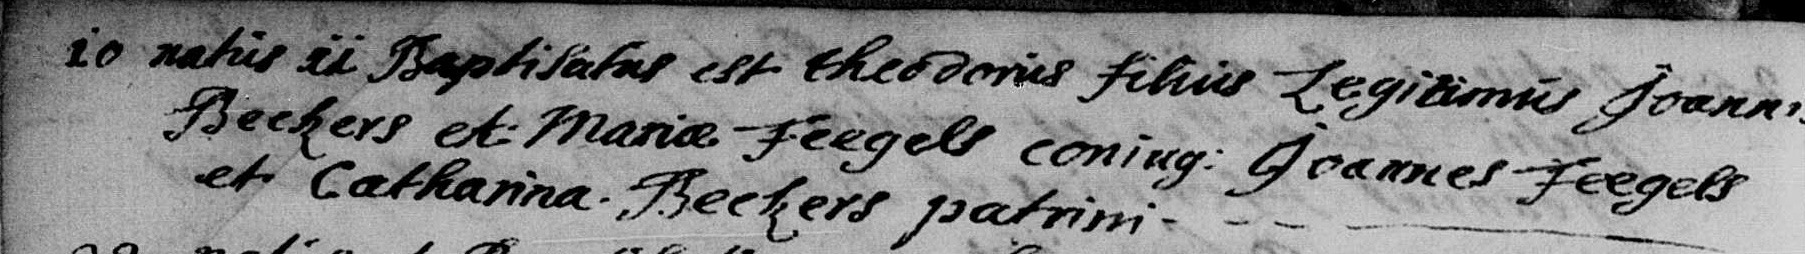 10 natus ii Baptisatus est theodorus filius Legitimus Joannis
Beckers et Mariæ Feegels coniug: Joannes Feegels
et Catharina Beckers patrini